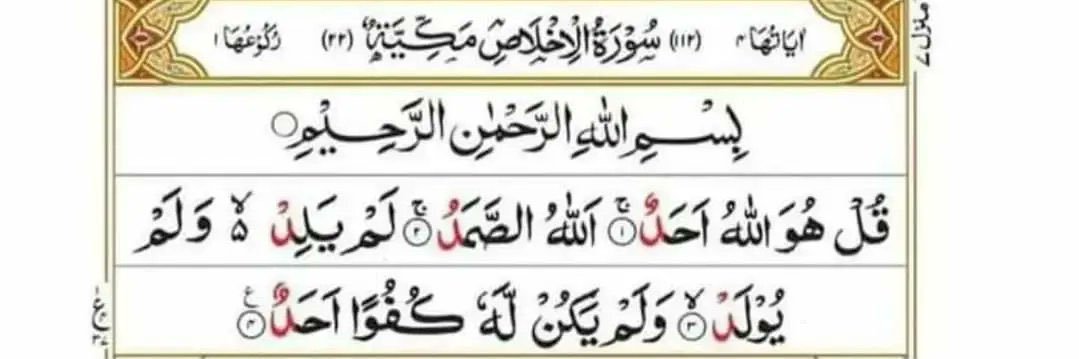 اٰيَاتُهَا ٤ (١١٢) سُوْرَةُ الْاِخْلَاصِ مَكِّيَّةٌ (٢٢) رُكُوْعُهَا ١
منزل ٧
بِسْمِ اللّٰهِ الرَّحْمٰنِ الرَّحِيْمِ ○
قُلْ هُوَ اللّٰهُ اَحَدٌ ۚ ١ اَللّٰهُ الصَّمَدُ ۚ ٢ لَمْ يَلِدْ ۙ ۵ وَلَمْ
يُوْلَدْ ۙ ٣ وَلَمْ يَكُنْ لَّهٗ كُفُوًا اَحَدٌ ࣖ ٤
ع